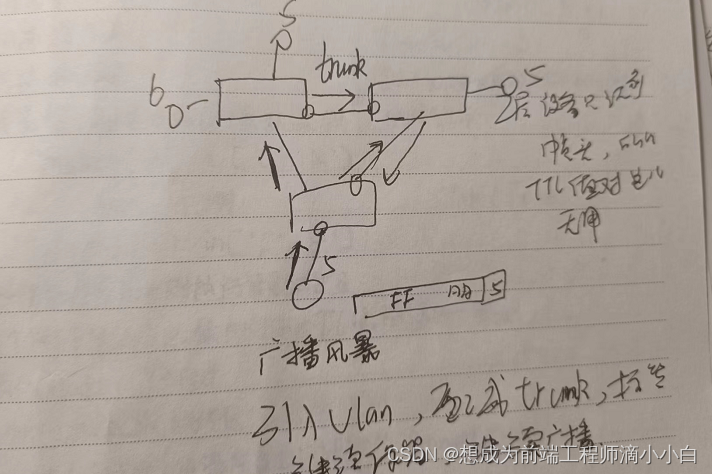 5
trunk
6
5
2层设备只识别
帧头,所以
TTL值对它们
无用
5
FF AA 5
广播风暴
引入vlan,配成trunk,
广播.
CSDN @想成为前端工程师滴小小白